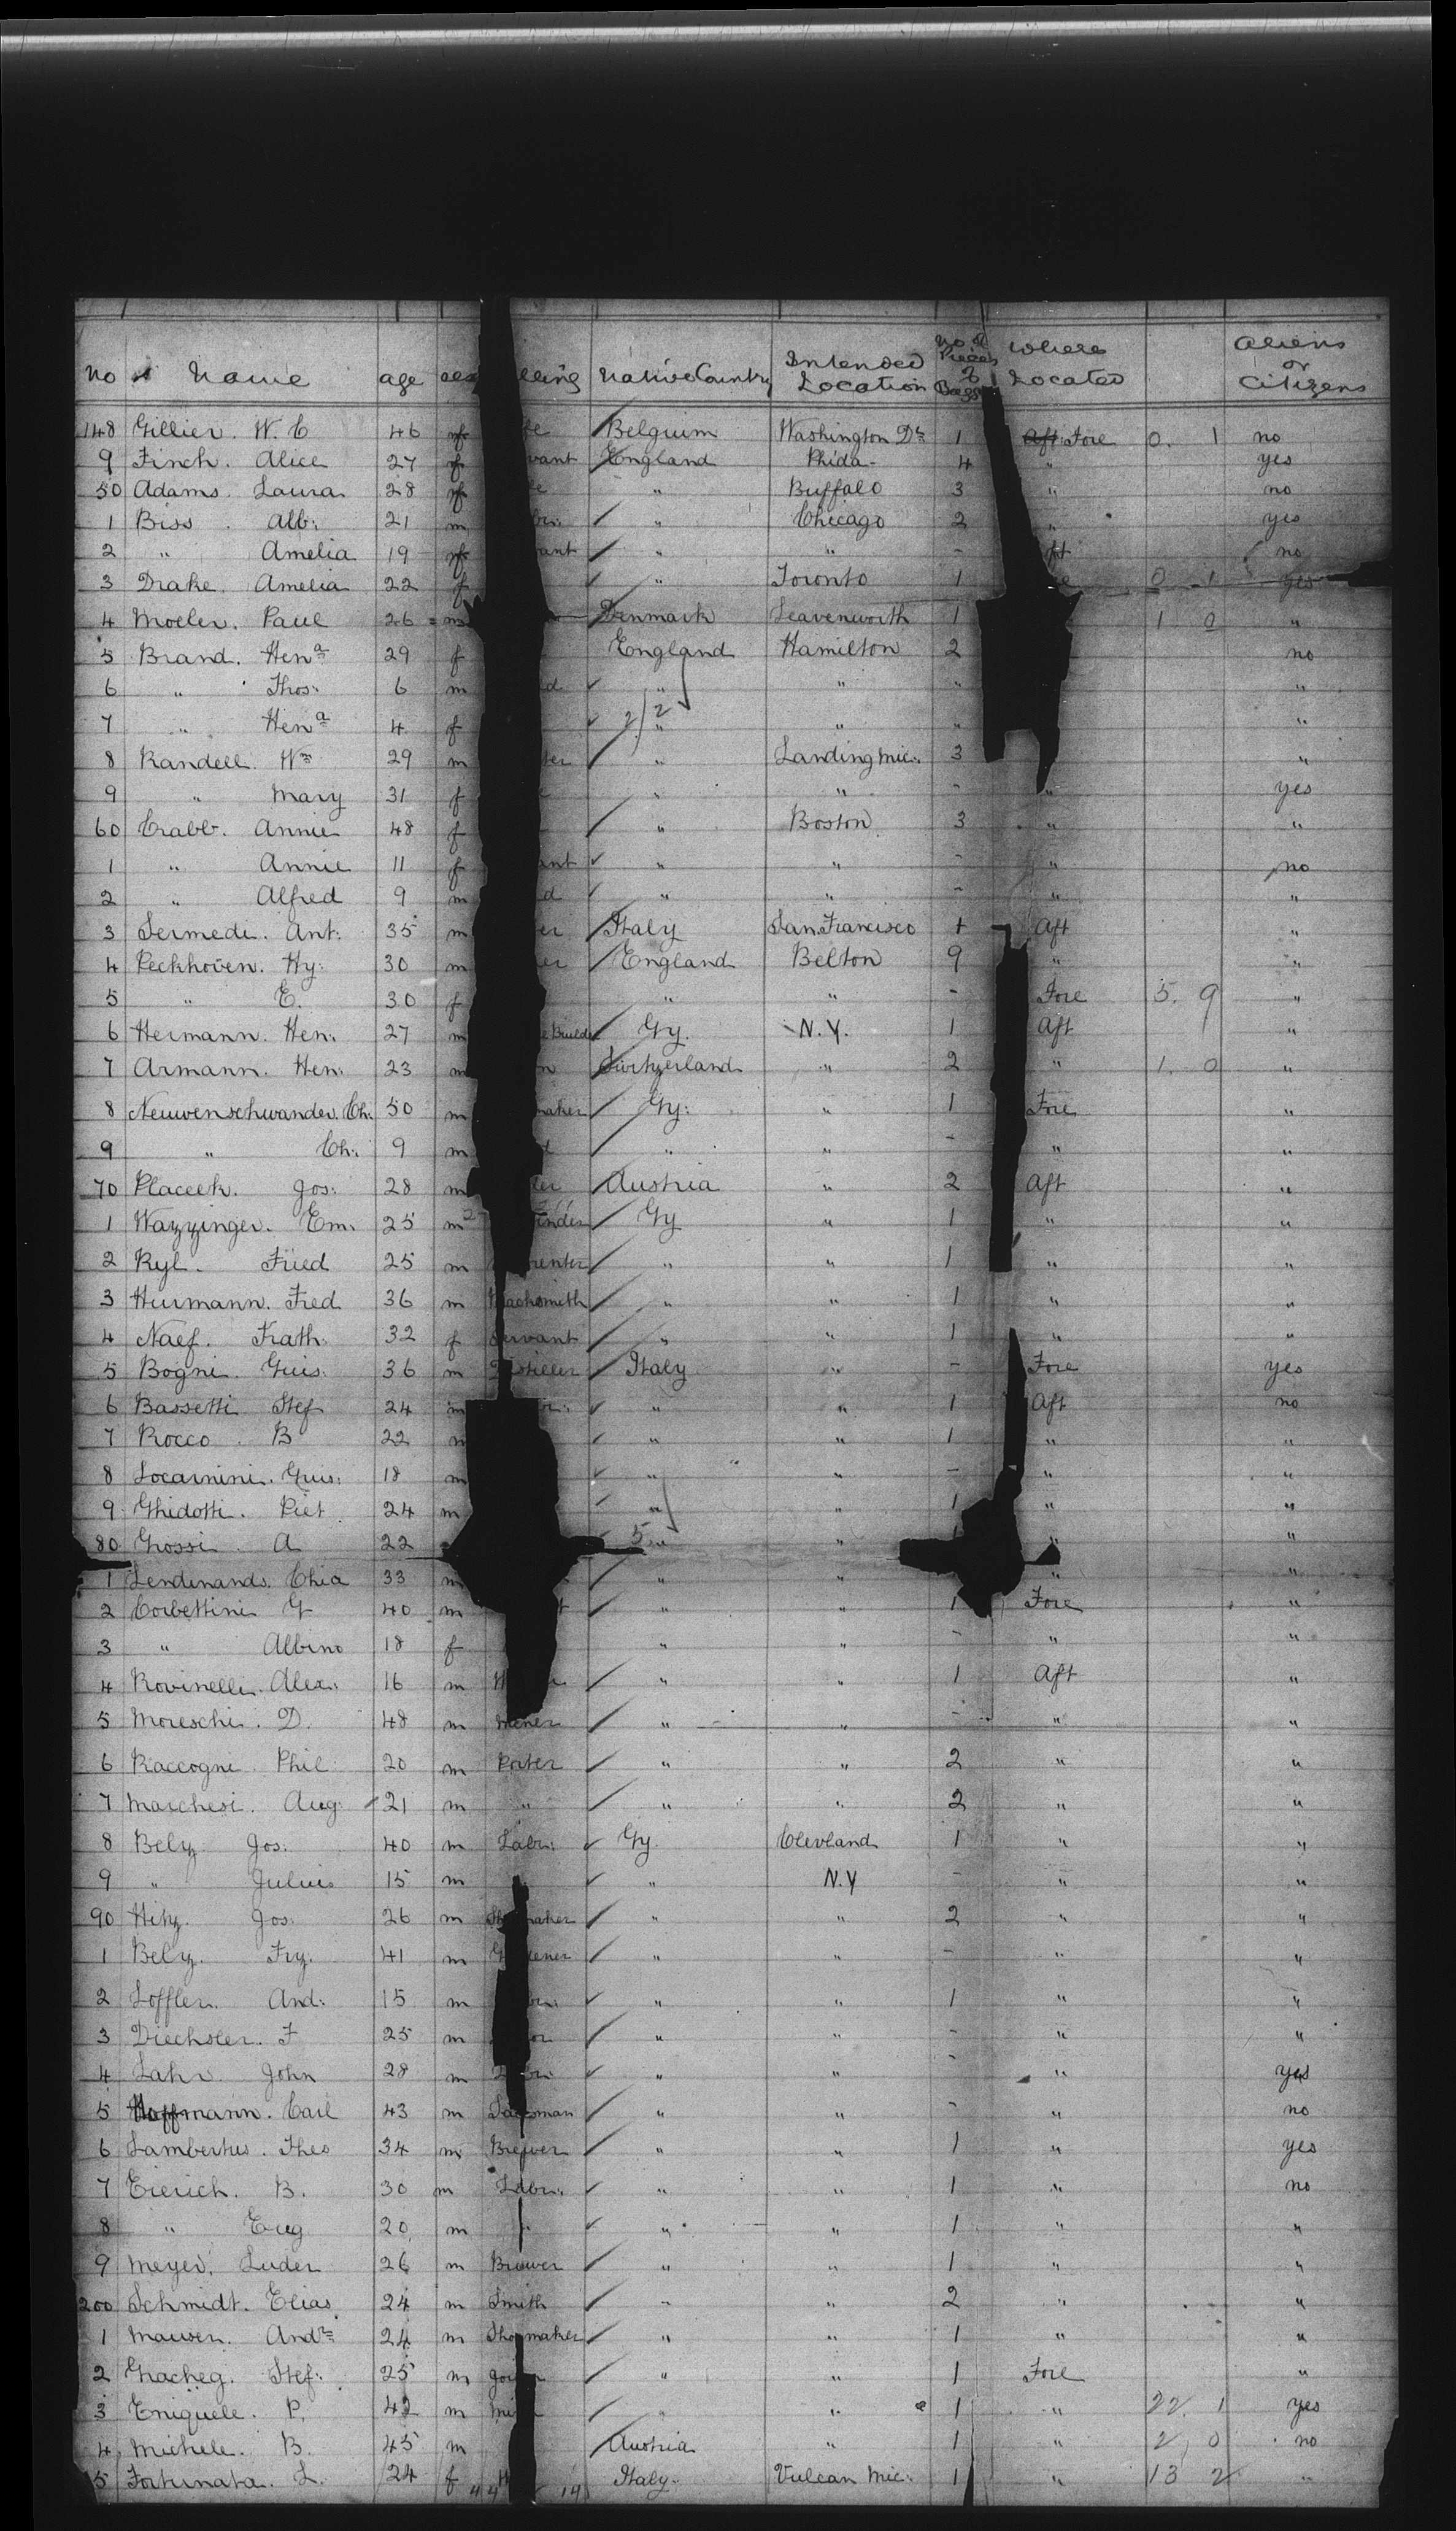 No Name age Native Country Intended Location No of Pieces of Bagg Where Located Aliens or Citizens
148 Gillier. W. C 46 f Belgium Washington Dc 1 Fore 0. 1 no
9 Finch. Alice 27 f England Phida- 4 " yes
50 Adams. Laura 28 f " Buffalo 3 " no
1 Biss. Alb: 21 m " Chicago 2 " yes
2 " Amelia 19 f " " - no
3 Drake. Amelia 22 f " Toronto 1 0 1 yes
4 Moeler. Paul 26 m Denmark Leavenworth 1 1 0 "
5 Brand. Hena 29 f England Hamilton 2 no
6 " Thos: 6 m " " " "
7 " Hena 4 f " " " "
8 Randell. Wm 29 m " Landing Mic: 3 "
9 " Mary 31 f " " - " yes
60 Crabb. Annie 48 f " Boston 3 " "
1 " Annie 11 f " " - " no
2 " Alfred 9 m " " - " "
3 Sermedi. Ant: 35 m Italy San Francisco Aft "
4 Peckhoven. Hy: 30 m England Belton 9 " "
5 " E. 30 f " " - Fore 5. 9 "
6 Hermann. Hen: 27 m Gy. N.Y. 1 Aft "
7 Armann. Hen: 23 m Switzerland " 2 " 1. 0 "
8 Neuwenschwander. Ch: 50 m Gy: " 1 Fore "
9 " Ch: 9 m " " - " "
70 Placeek. Jos: 28 m Austria " 2 Aft "
1 Wazzinger. Em. 25 m Gy " 1 " "
2 Ryl. Fried 25 m " " 1 " "
3 Hurmann. Fred 36 m Blacksmith " " 1 " "
4 Naef. Frath: 32 f Servant " " 1 " "
5 Bogni. Guis: 36 m Distiller Italy " - Fore yes
6 Bassetti Stef 24 m " " 1 Aft no
7 Rocco. B 22 m " " 1 " "
8 Locarnini. Guis: 18 m " " - " "
9 Ghidotti. Piet 24 m " " 1 " "
80 Grossi. A 22 " " " "
1 Lendinands. Chia 33 m " " " "
2 Corbettini G 40 m " " 1 Fore "
3 " Albino 18 f " " - " "
4 Rovinelli. Alex: 16 m " " 1 Aft "
5 Moreschi. D. 48 m Miner " " - " "
6 Raccogni. Phil 20 m Porter " " 2 " "
7 Marchesi. Aug: 21 m " " " 2 " "
8 Bely Jos: 40 m Labr: Gy. Clevland 1 " "
9 " Julius 15 m " N.Y - " "
90 Hitz. Jos: 26 m Shoemaker " " 2 " "
1 Bely. Fry: 41 m Gardener " " - " "
2 Loffler. And: 15 m " " 1 " "
3 Diechsler. F 25 m " " - " "
4 Lahr. John 28 m Labr: " " - " yes
5 Hoffmann. Carl 43 m " " - " no
6 Lambertus. Theo 34 m Brewer " " 1 " yes
7 Eierich. B. 30 m Labr: " " 1 " no
8 " Eug 20 m " " " 1 " "
9 Meyer. Luder 26 m Brewer " " 1 " "
200 Schmidt. Elias 24 m Smith " " 2 " "
1 Mauser. Andr 24 m Shoemaker " " 1 " "
2 Gracheg. Stef: 25 m " " 1 Fore "
3 Eniquele. P. 42 m " " 1 " 22. 1 yes
4 Michele. B. 45 m Austria " 1 " 2, 0 no
5 Fortunata. L. 24 f Italy. Vulcan Mic: 1 " 13 2 "